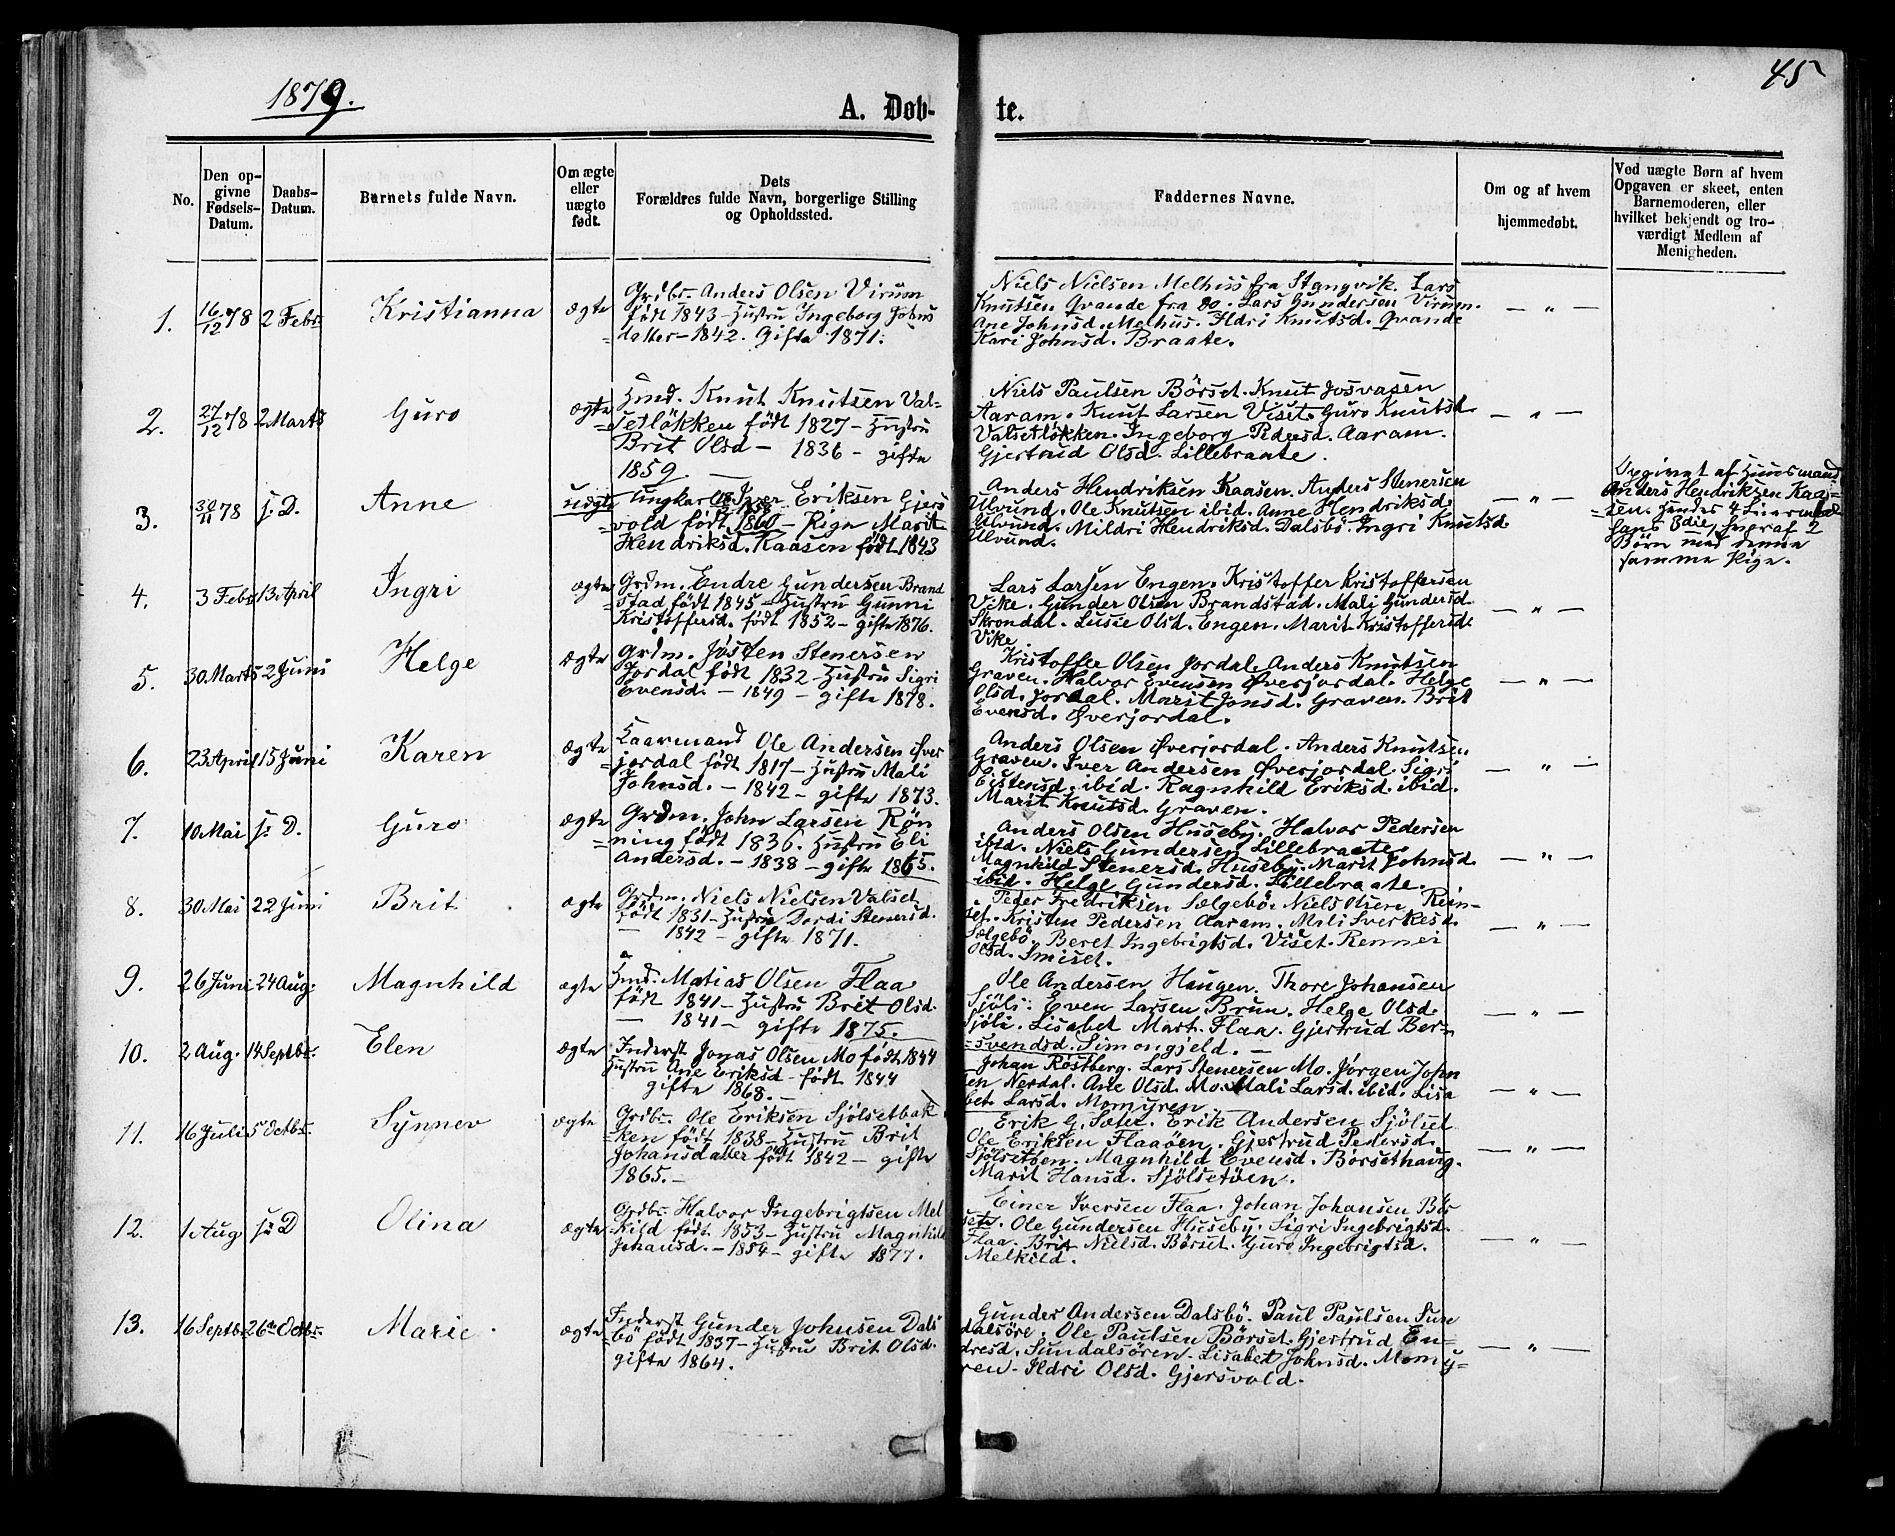 1879.
45
A. Døb-
te.
No.
Den op-
givne
Fødsels-
Datum.
Daabs-
Datum.
Barnets fulde Navn.
Om ægte
eller
uægte
født.
Dets
Forældres fulde Navn, borgerlige Stilling
og Opholdssted.
Faddernes Navne.
Om og af hvem
hjemmedøbt.
Ved uægte Børn af hvem
Opgaven er skeet, enten
Barnemoderen, eller
hvilket bekjendt og tro-
værdigt Medlem af
Menigheden.
1. 16/12 78 2 Febr. Kristianna ægte
Grdbr. Anders Olsen Virum
født 1843 – Hustru Ingeborg Johns
=datter – 1842. Gifte 1871.
Niels Nielsen Melhus fra Stangvik. Lars
Knutsen Qvande fra do. Lars Gundersen Virum.
Ane Johnsd. Melhus. Ildri Knutsd. Qvande
Kari Johnsd. Braate.
— " —
2. 27/12 78 2 Marts Guro ægte
Hmd. Knut Knutsen Val-
=setløkken født 1827 – Hustru
Brit Olsd – 1836 – gifte
1859. —
Niels Paulsen Börset. Knut Josvasen
Aaram. Knut Larsen Viset. Guro Knutsd.
Valsetløkken. Ingeborg Pedersd. Aaram.
Gjertrud Olsd. Lillebraate.
— " —
3. 30/11 78 s. D. Anne uægte
Ungkarl Iver Eriksen Gjers
1858
=vold født 1860 – Pige Marit
Hendriksd. Kaasen født 1843
Anders Hendriksen Kaasen. Anders Stenersen
Ulvund. Ole Knutsen ibid. Anne Hendriksd.
Ulvund. Mildri Hendriksd. Dalsbö. Ingri Knutsd.
Ulvund.
— " —
Opgivet af Huusmand
Anders Hendriksen Kaa-
=sen. Hendes 4 Leiermaal
hans 3die, Ingraf 2
Børn med denne
samme Pige.
4. 3 Febr 13 April Ingri ægte
Grdm. Endre Gundersen Brand
=stad født 1845 – Hustru Gunni
Kristoffersd. født 1852 – gifte 1876.
Lars Larsen Engen. Kristoffer Kristoffersen
Vike. Gunder Olsen Brandstad. Mali Gundersd.
Skrondal. Lusie Olsd. Engen. Marit Kristoffersd.
Vike
— " —
5. 30 Marts 2 Juni Helge ægte
Grdm. Jösten Stenersen
Jordal født 1832 – Hustru Sigri
Evensd. – 1849 – gifte 1878.
Kristoffer Olsen Jordal. Anders Knutsen
Graven. Halvor Evensen Øverjordal. Helge
Olsd. Jordal. Marit Jonsd. Graven. Brit
Evensd. Øverjordal.
— " —
6. 23 April 15 Juni Karen ægte
Kaarmand Ole Andersen Øver
=jordal født 1817 – Hustru Mali
Johnsd. – 1842 – gifte 1873.
Anders Olsen Øverjordal. Anders Knutsen
Graven. Iver Andersen Øverjordal. Sigri
Eistensd. ibid. Ragnhild Eriksd. ibid.
Marit Knutsd. Graven.
— " —
7. 10 Mai s. D. Guro ægte
Grdm. John Larsen Røn
=ning født 1836. Hustru Eli
Andersd. – 1838 – gifte 1865.
Anders Olsen Huseby. Halvor Pedersen
ibid. Niels Gundersen Lillebraate.
Magnhild Stenersd. Huseby. Marit Johnsd.
ibid. Helge Gundersd. Lillebraate.
— " —
8. 30 Mai 22 Juni Brit ægte
Grdm. Niels Nielsen Valset
født 1831 – Hustru Dordi Stenersd.
— 1842 – gifte 1871.
Peder Fredriksen Sælgebö. Niels Olsen Rein-
set. Kristen Pedersen Aaram. Mali Sverkesd.
Sælgebö. Beret Ingebrigtsd. Viset. Rennei
Olsd. Smiset.
— " —
9. 26 Juni 24 Aug. Magnhild ægte
Hmd. Matias Olsen Flaa
født 1841 – Hustru Brit Olsd.
— 1841 – gifte 1875.
Ole Andersen Haugen. Thore Johansen
Sjöli. Even Larsen Brun. Helge Olsd.
Sjöli. Lisabet Mart. Flaa. Gjertrud Ber-
=svendsd. Simongjeld. —
— " —
10. 2 Aug. 14 Septbr. Elen ægte
Inderst Jonas Olsen Mo født 1844
Hustru Ane Eriksd – født 1844
gifte 1868. —
Johan Röstberg. Lars Stenersen Mo. Jørgen John
sen Nerdal. Ane Olsd. Mo. Mali Larsd. ibid. Lisa
bet Larsd. Momyren.
— " —
11. 16 Juli 5 Octbr. Synnev ægte
Grdbr. Ole Eriksen Sjölsetbak
=ken født 1838 – Hustru Brit
Johansdatter født 1842 – gifte
1865. —
Erik G. Sæter. Erik Andersen Sjölset
Ole Eriksen Flaaöen. Gjertrud Pedersd.
Sjölsetöen. Magnhild Evensd. Börsethaug.
Marit Hansd. Sjölsetöen.
— " —
12. 1 Aug s. D Olina ægte
Grdbr. Halvor Ingebrigtsen Mel
=kild født 1853 – Hustru Magnhild
Johansd. – 1854 – gifte 1877.
Einer Iversen Flaa. Johan Johansen Bör
set. Ole Gundersen Huseby. Sigri Ingebrigtsd.
Flaa. Brit Nielsd. Börset. Guro Ingebrigtsd.
Melkild.
— " —
13. 16 Septbr. 26 Octbr. Marie ægte
Inderst Gunder Johnsen Dals
bö født 1837 – Hustru Brit Olsd.
gifte 1864.
Gunder Andersen Dalsbö. Paul Paulsen Sun
dalsöre. Ole Paulsen Börset. Gjertrud En-
dresd. Sundalsören. Lisabet Johnsd. Momy-
ren. Ildri Olsd. Gjersvold.
— " —